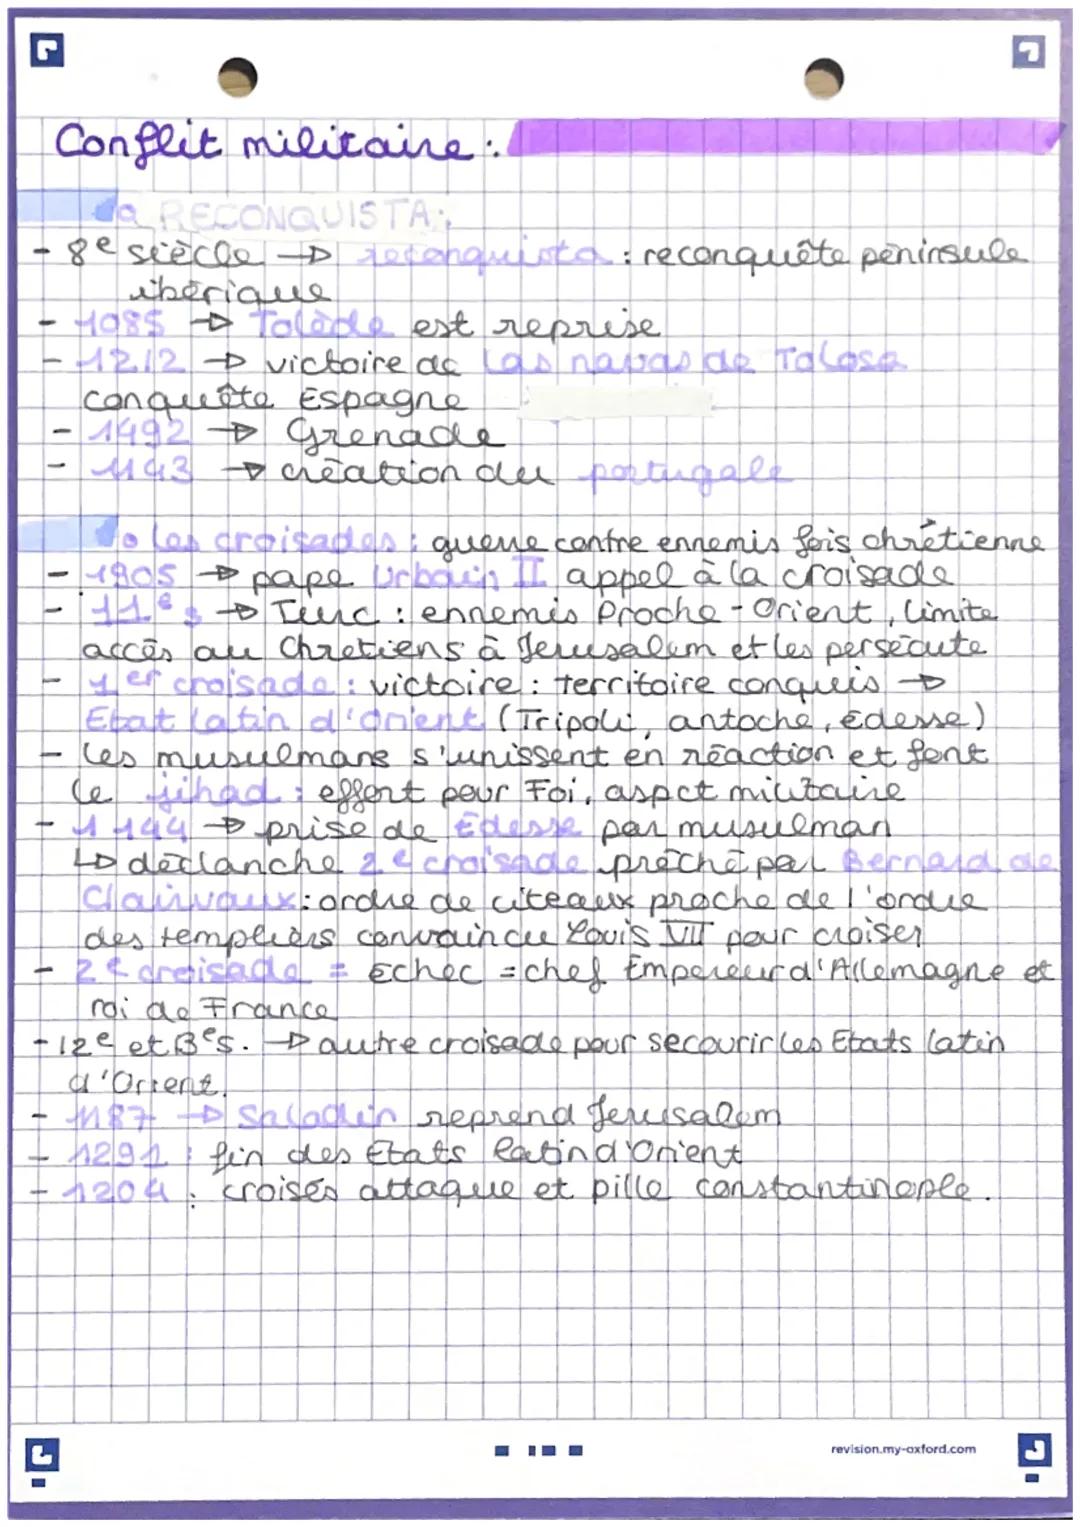 Conflit militaire :
La RECONQUISTA :
- 8e siècle → reconquista : reconquête péninsule
ibérique
- 1085 → Tolède est reprise
- 1212 → victoire de Las navas de Tolosa
conquête Espagne
- 1492 → Grenade
- 1143 → création du portugale
les croisades : guerre contre ennemis fois chrétienne
- 1905 → pape Urbain II appel à la croisade
- 11e s → Turc : ennemis Proche-Orient, limite
accès au Chretiens à Jerusalem et les persécute
- 1er croisade : victoire : territoire conquis →
Etat latin d'Orient (Tripoli, antoche, Edesse)
- les musulmans s'unissent en réaction et font
le jihad : effort pour Foi, aspct militaire
- 1144 → prise de Edesse par musulman
↳ déclanche 2e croisade prêché par Bernard de
Clairvaux : ordre de citeaux proche de l'ordre
des templiers convaincu Louis VII pour croiser
- 2e croisade = Echec = chef Empereur d'Allemagne et
roi de France
- 12e et 13e s. → autre croisade pour secourir les Etats latin
d'Orient.
- 1187 → Saladin reprend Jerusalem
- 1291 : fin des Etats latin d'Orient
- 1204 : croisés attaque et pille constantinople.
revision.my-oxford.com